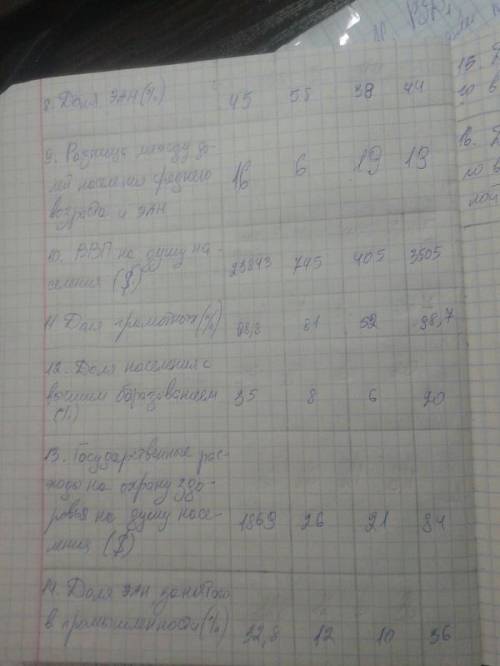 8. Доля ЭАН (%) 45 58 38 44
9. Разница между до-
лей населения среднего
возраста и ЭАН 16 6 19 19
10. ВВП на душу на-
селения ($) 23843 745 405 3505
11 Доля грамотных (%) 98,8 61 52 98,7
12. Доля населения с
высшим боразованием
(%) 35 8 6 20
13. Государственные рас-
ходы на охрану здо-
ровья на душу насе-
ления ($) 1869 26 21 84
14. Доля ЭАН занятого
в промышленности (%) 32,8 12 10 36
15.
10 в
16.
10 в